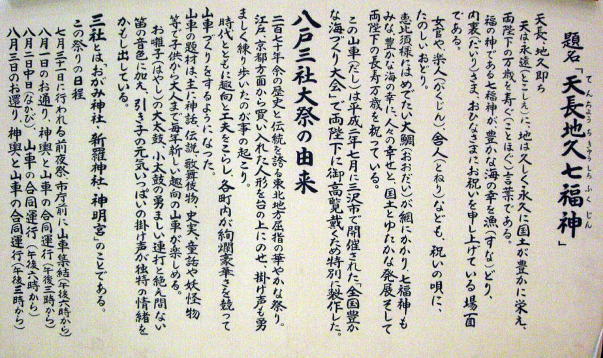 題名「天長地久七福神」
てんちょうちきゅうしちふくじん
天長、地久即ち
天は永遠(とこしえ)に、地は久しく永久に国土が豊かに栄え、
両陛下の万歳を寿ぐ(ことほぐ)言葉である。
福の神である七福神が豊かな海の幸を漁(すなどり)どり、
内裏(だいり)さま、おひなさまにお祝いを申し上げている場面
である。
女官や、楽人(がくじん)、舎人(とねり)なども、祝いの唄に、
たのしいおどり。
恵比須様にはめでたい大鯛(おおだい)が網にかかり、七福神も
みな、豊かな海の幸に、人々の幸せと、国土のゆたかな発展そして
両陛下の長寿万歳を祝っている。
この山車(だし)は平成二年七月に三沢市で開催された「全国豊か
な海づくり大会」で両陛下に御高覧戴くため特別に製作した。
八戸三社大祭の由来
二百七十年余の歴史と伝統を誇る東北地方屈指の華やかな祭り。
江戸、京都方面から買い入れた人形を台の上にのせ、掛け声も勇
ましく練り歩いたのが事の起こり。
時代とともに趣向と工夫をこらし、各町内が絢爛豪華さを競って
山車づくりをするようになった。
山車の題材は、主に神話、伝説、歌舞伎物、史実、童話や妖怪物
等で子供から大人まで毎年新しい趣向の山車が楽しめる。
お囃子(はやし)の大太鼓、小太鼓の勇ましい連打と絶え間ない
笛の音色に加え、引き子の元気いっぱいの掛け声が独特の情緒を
かもし出している。
三社とは、おがみ神社、新羅神社、神明宮のことである。
この祭りの日程
七月三十一日に行われる前夜祭、市庁前に山車集結(午後六時から)
八月一日のお通り、神輿と山車の合同運行(午後三時から)
八月二日中日(なかび)、山車の合同運行(午後六時から)
八月三日のお還り、神輿と山車の合同運行(午後三時から)